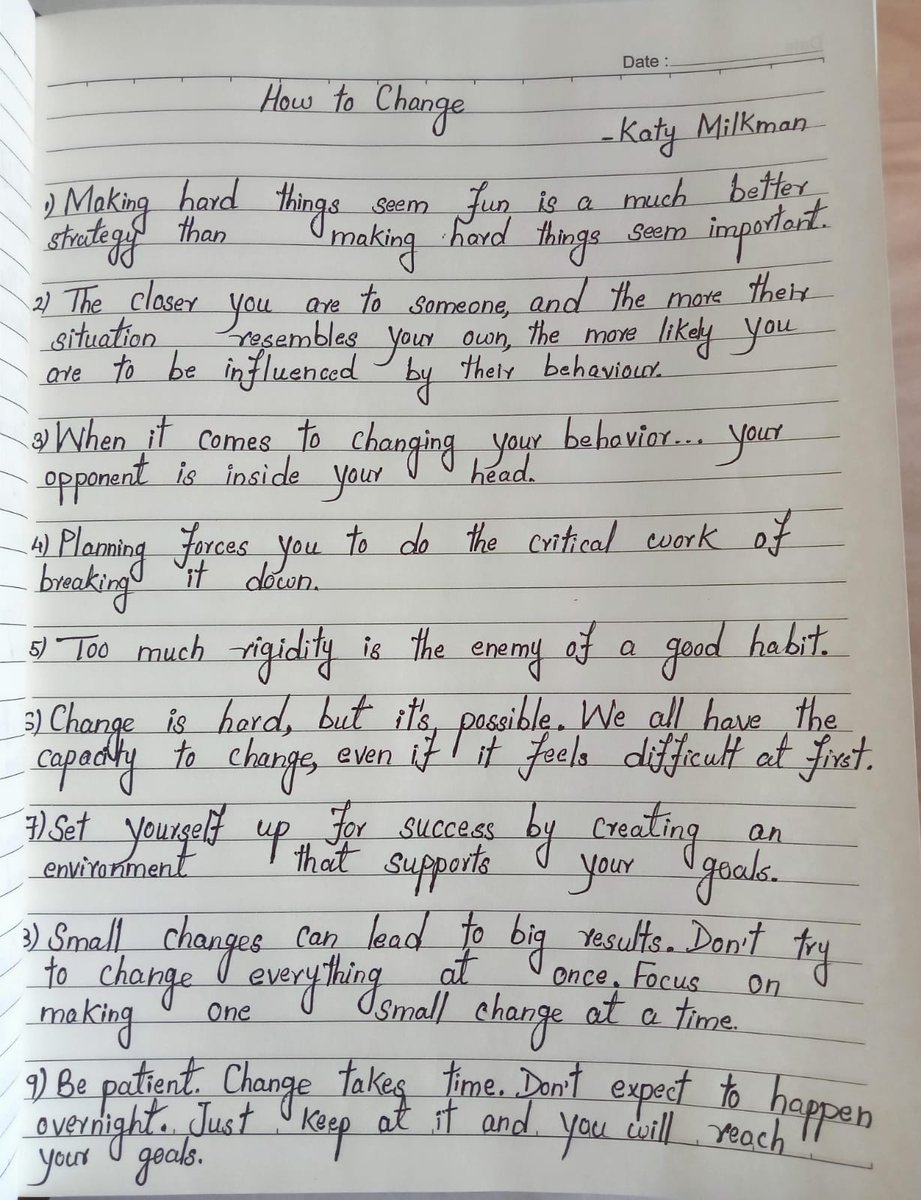 Date :
How to Change
-Katy Milkman
1) Making hard things seem fun is a much better
strategy than making hard things seem important.
2) The closer you are to someone, and the more their
situation resembles your own, the more likely you
are to be influenced by their behaviour.
3) When it comes to changing your behavior... your
opponent is inside your head.
4) Planning forces you to do the critical work of
breaking it down.
5) Too much rigidity is the enemy of a good habit.
6) Change is hard, but it's possible. We all have the
capacity to change, even if it feels difficult at first.
7) Set yourself up for success by creating an
environment that supports your goals.
8) Small changes can lead to big results. Don't try
to change everything at once. Focus on
making one small change at a time.
9) Be patient. Change takes time. Don't expect to happen
overnight. Just keep at it and you will reach
your goals.